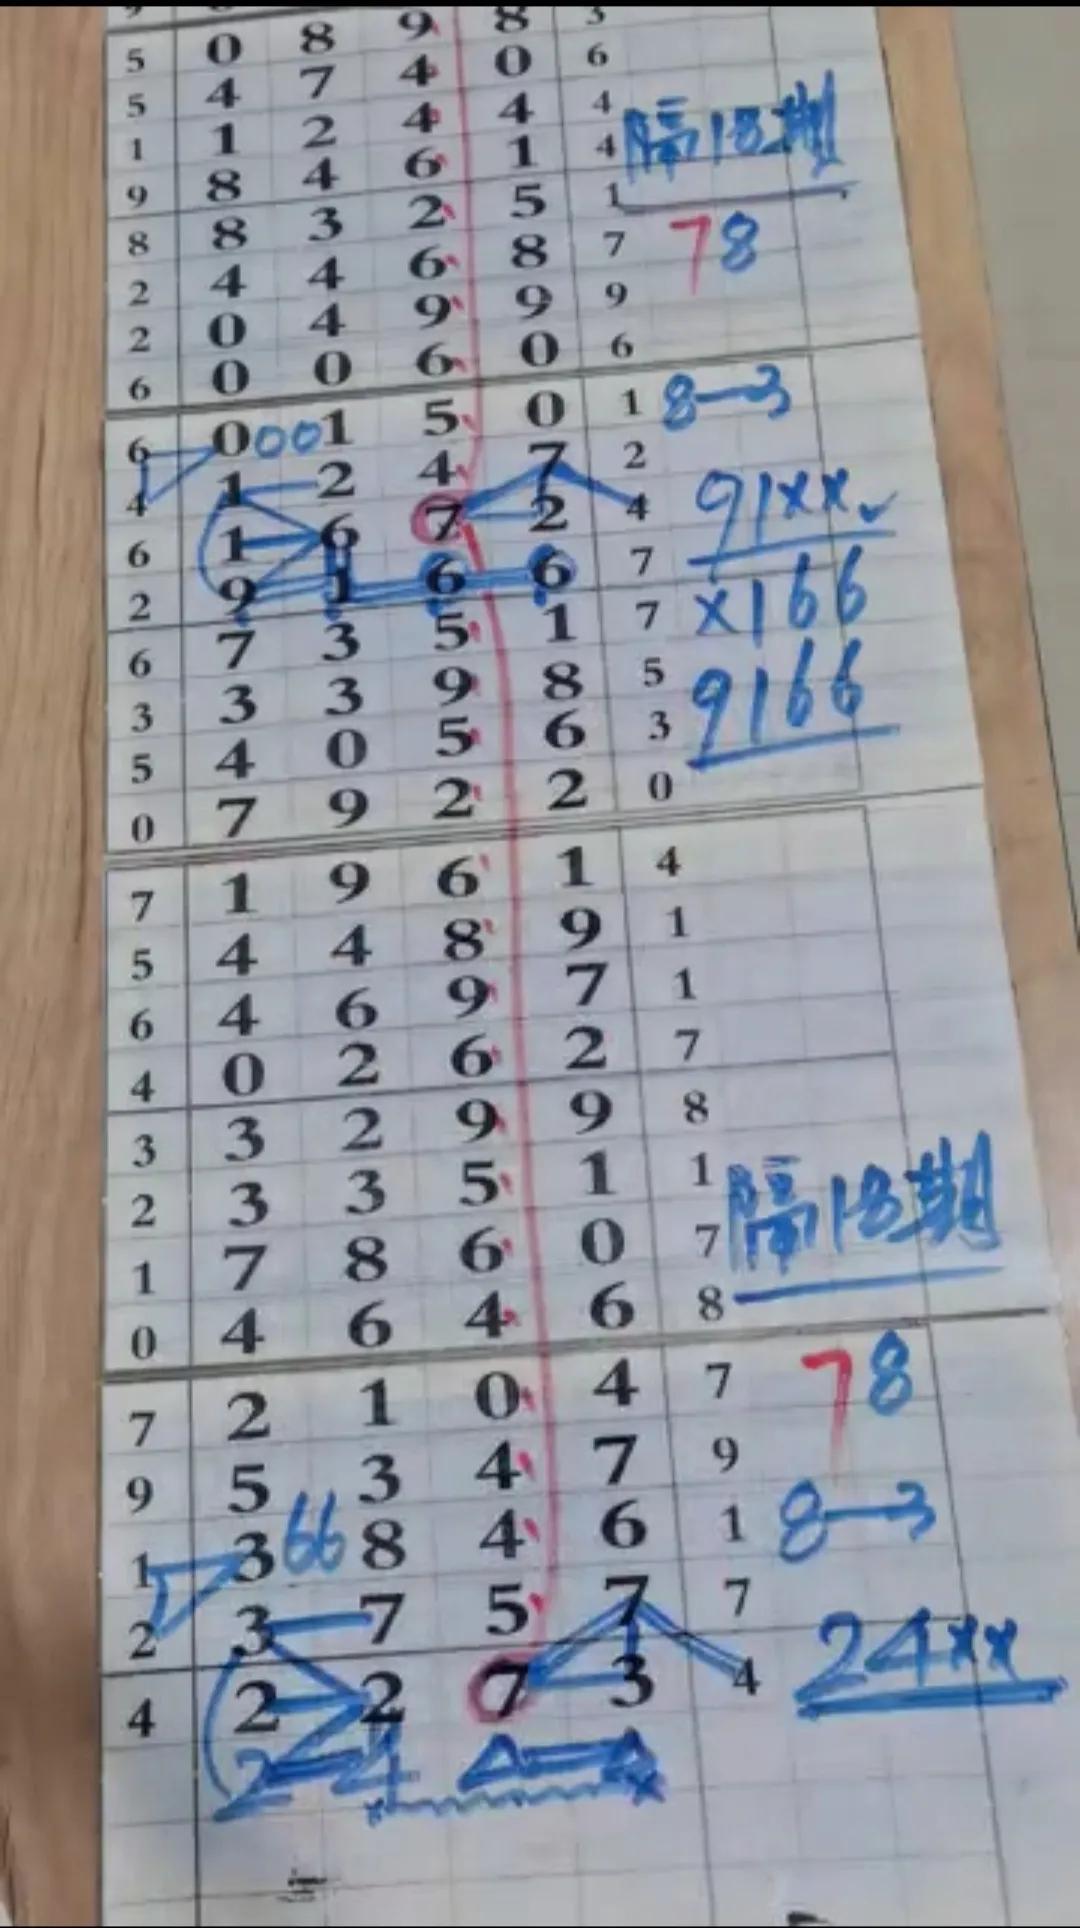 5 0 8 9 8 3
5 4 7 4 0 6
1 1 2 4 4 4
9 8 4 6 1 4
隔18期
8 8 3 2 5 1
2 4 4 6 8 7
78
2 0 4 9 9 9
6 0 0 6 0 6
6 0 00 1 5 0 1 8—3
4 1 2 4 7 2
6 1 6 7 2 4 91xx
2 9 1 6 6 7
x166
6 7 3 5 1 7
3 3 3 9 8 5
9166
5 4 0 5 6 3
0 7 9 2 2 0
7 1 9 6 1 4
5 4 4 8 9 1
6 4 6 9 7 1
4 0 2 6 2 7
3 3 2 9 9 8
2 3 3 5 1 1
隔18期
1 7 8 6 0 7
0 4 6 4 6 8
7 2 1 0 4 7 78
9 5 3 4 7 9
1 3 66 8 4 6 1 8—3
2 3 7 5 7 7
24xx
4 2 2 7 3 4
2 4